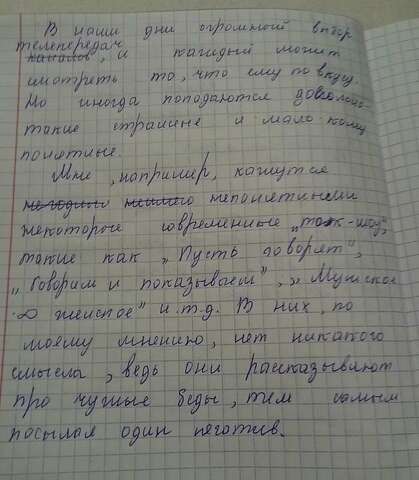 В наши дни огромной выбор
телепередач
каналов, и каждый может
смотреть то, что ему по вкусу.
Но иногда поподаются довольно
такие странные и мало кому
понятные.
Мне, например, кажутся
непонятными
некоторые современные „ток-шоу",
такие как „Пусть говорят",
„Говорим и показываем", „Мужское
женское" и т.д. В них, по
моему мнению, нет никакого
смысла, ведь они рассказывают
про чужие беды, тем самым
посылая один негатив.